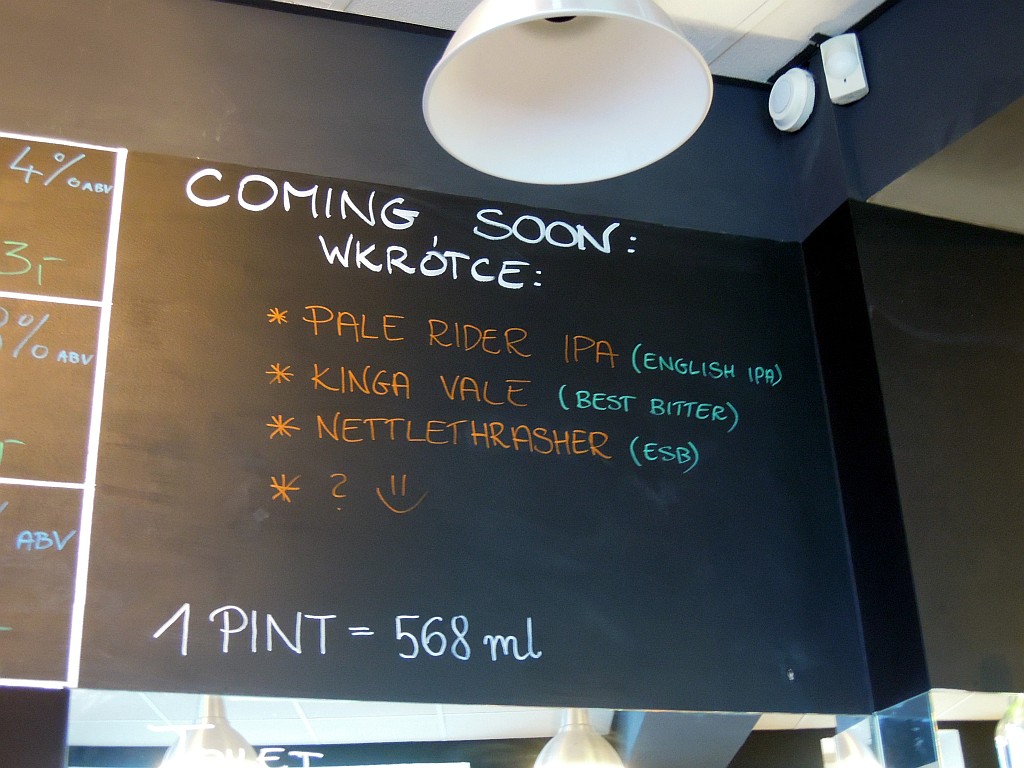 4% ABV
3,-
% ABV
ABV
COMING SOON:
WKRÓTCE:
* PALE RIDER IPA (ENGLISH IPA)
* KINGA VALE (BEST BITTER)
* NETTLETHRASHER (ESB)
* ? :)
1 PINT = 568 ml